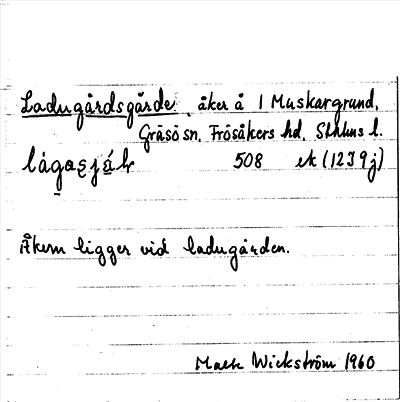 Ladugårdsgärde, åker å 1 Muskargrund,
Gräsö sn, Frösåkers hd, Sthlms l.
508 ek (12I9j)
Åkern ligger vid ladugården.
Wickström 1960